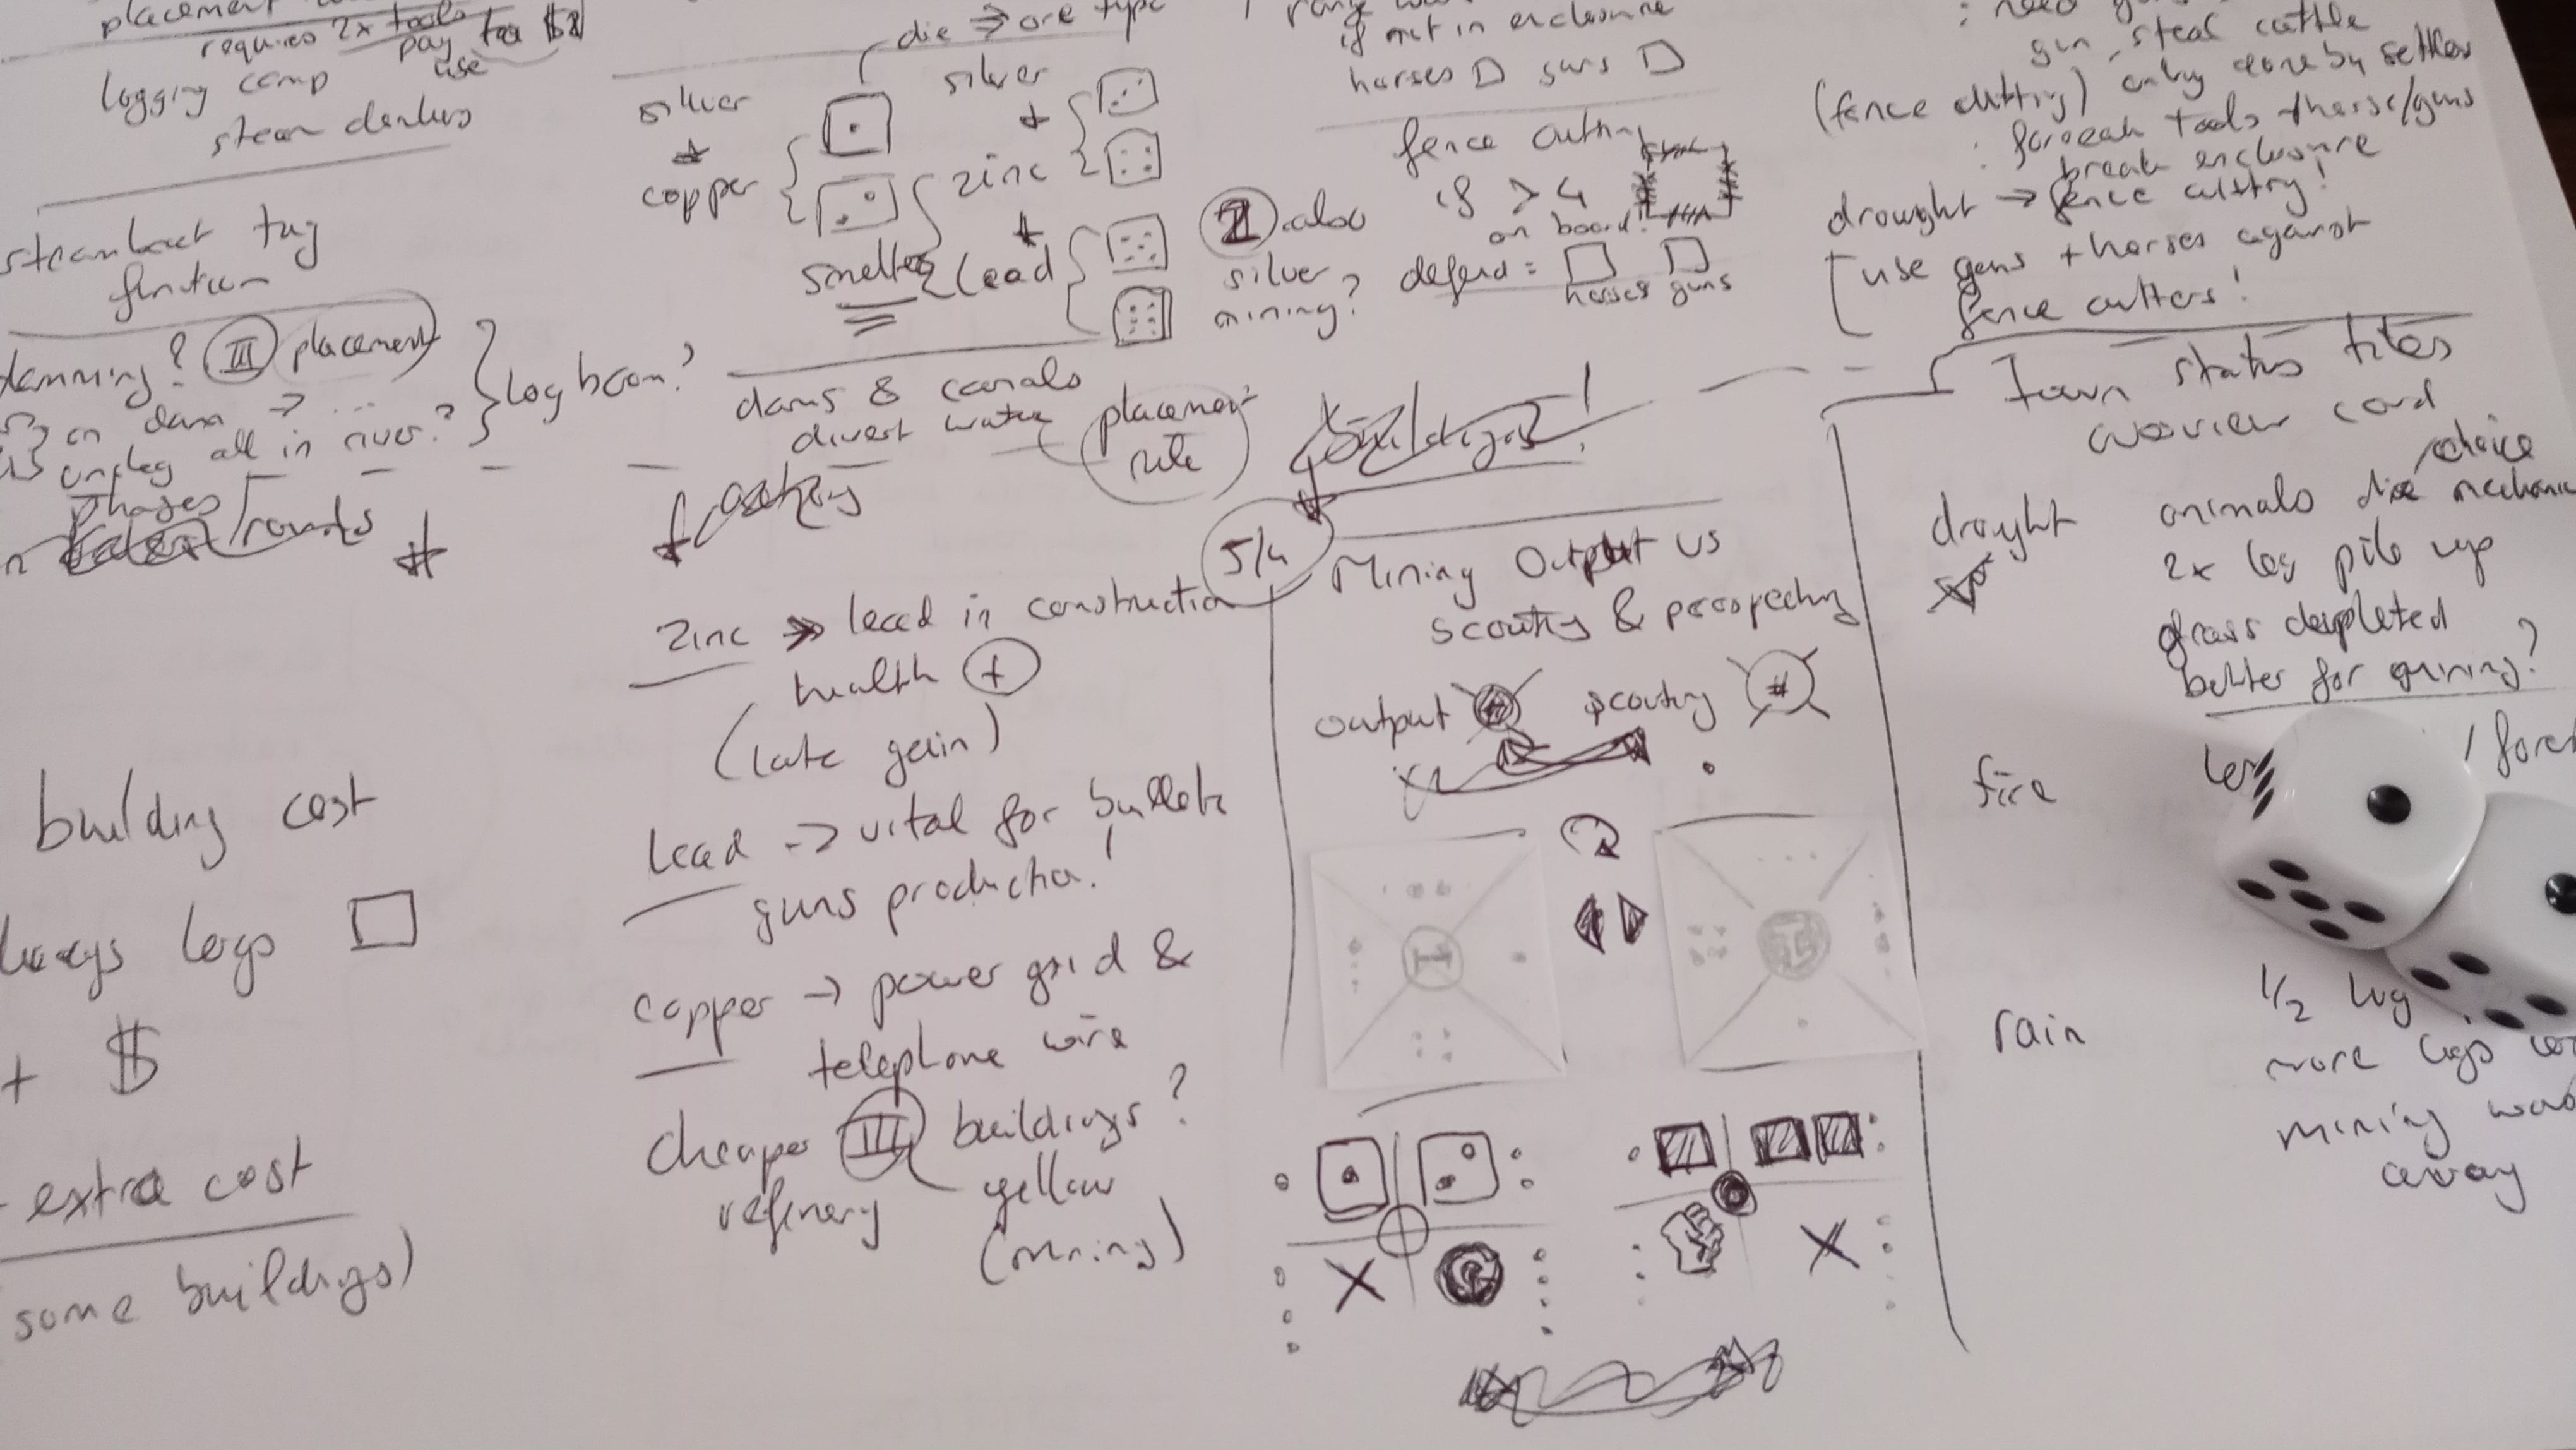 placement
requires 2x tools
pay $2
use
logging camp
steam donkeys
steamboat tug
function
damming? III placement
on dam → ...
all in river?
log boom?
phases
/rounds
building cost
logs
+ $
extra cost
some buildings)
die → ore type
silver
+
copper
silver
+
zinc
+
lead
smelter
dams & canals
divert water
placement
rule
zinc → lead in construction
health +
(late gain)
lead → vital for bullets
guns production!
copper → power grid &
telephone wire
cheaper III buildings?
refinery
yellow
(mining)
if not in enclosure
horses guns
fence cutting
if > 4
on board!
II also
silver
mining?
defend =
horses guns
buildings!
5/4
Mining Output vs
scouting & prospecting
output
scouting #
I
: need
gun, steal cattle
(fence cutting) only done by settler
: tools + horse/guns
break enclosure
drought → fence cutting!
use guns + horses against
fence cutters!
Town status tiles
overview card
choice
drought
animals die mechanic
2x log pile up
grass depleted
better for mining?
fire
rain
1/2 log
more logs
mining
away